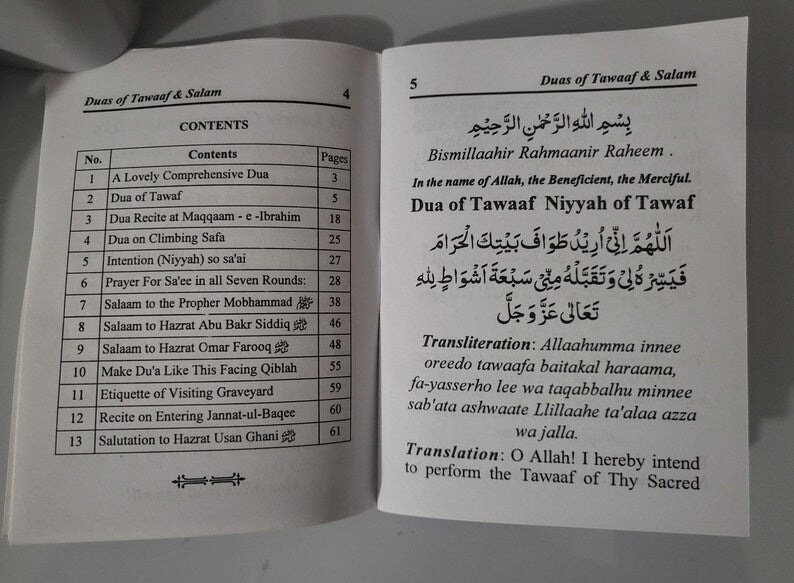 Duas of Tawaaf & Salam 4
CONTENTS
No. Contents Pages
1 A Lovely Comprehensive Dua 3
2 Dua of Tawaf 5
3 Dua Recite at Maqqaam - e -Ibrahim 18
4 Dua on Climbing Safa 25
5 Intention (Niyyah) so sa'ai 27
6 Prayer For Sa'ee in all Seven Rounds: 28
7 Salaam to the Propher Mobhammad ﷺ 38
8 Salaam to Hazrat Abu Bakr Siddiq 46
9 Salaam to Hazrat Omar Farooq 48
10 Make Du'a Like This Facing Qiblah 55
11 Etiquette of Visiting Graveyard 59
12 Recite on Entering Jannat-ul-Baqee 60
13 Salutation to Hazrat Usan Ghani 61
5 Duas of Tawaaf & Salam
بِسْمِ اللّٰهِ الرَّحْمٰنِ الرَّحِيْمِ
Bismillaahir Rahmaanir Raheem .
In the name of Allah, the Beneficient, the Merciful.
Dua of Tawaaf Niyyah of Tawaf
اَللّٰهُمَّ اِنِّيْ اُرِيْدُ طَوَافَ بَيْتِكَ الْحَرَامَ
فَيَسِّرْهُ لِيْ وَتَقَبَّلْهُ مِنِّيْ سَبْعَةَ اَشْوَاطٍ لِلّٰهِ
تَعَالٰى عَزَّ وَجَلَّ
Transliteration: Allaahumma innee
oreedo tawaafa baitakal haraama,
fa-yasserho lee wa taqabbalhu minnee
sab'ata ashwaate Llillaahe ta'alaa azza
wa jalla.
Translation: O Allah! I hereby intend
to perform the Tawaaf of Thy Sacred